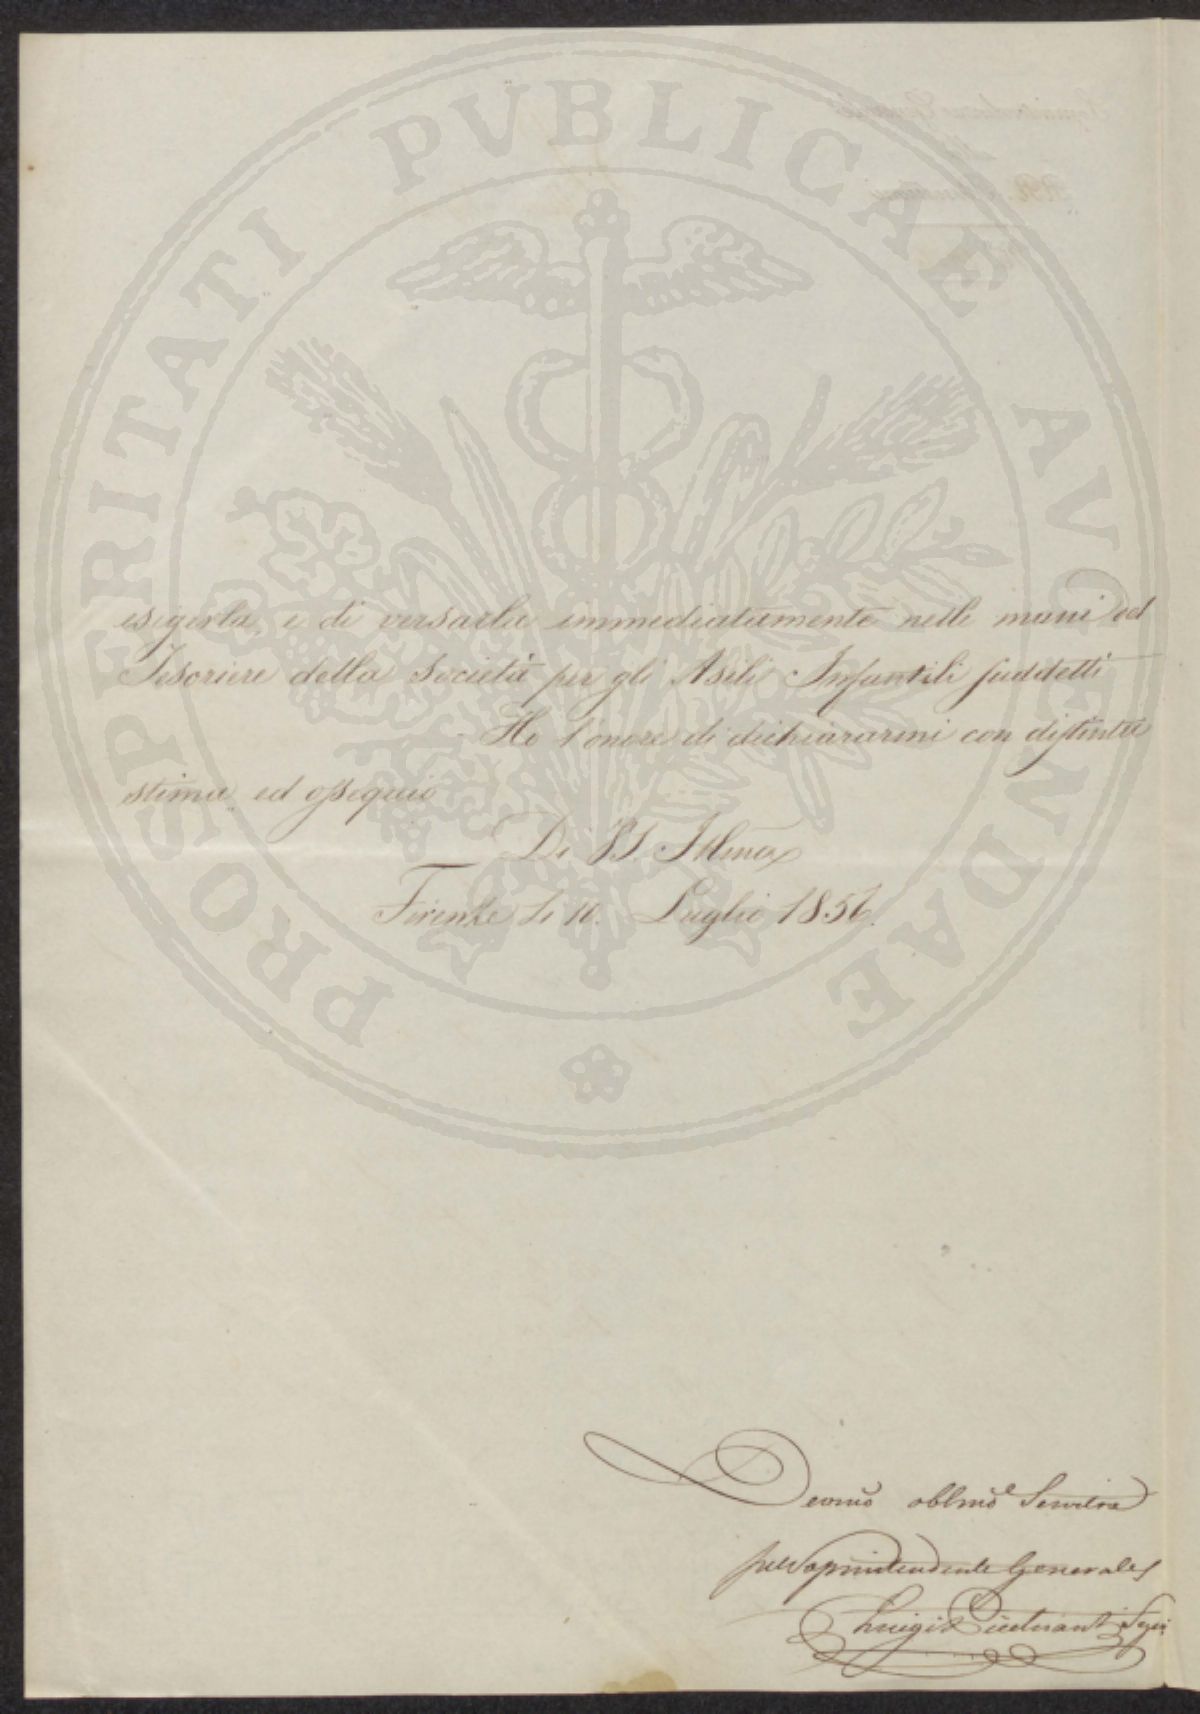 PROSPERITATI PUBLICAE AUGENDAE
esigerla, e di versarla immediatamente nelle mani del
Tesoriere della Società per gli Asili Infantili suddetti
Ho l'onore di dichiararmi con distinta
stima ed ossequio
Di VS. Illma
Firenze li 16. Luglio 1856.
Devmo obblmo Servitore
pel Soprintendente Generale
Luigi Segr